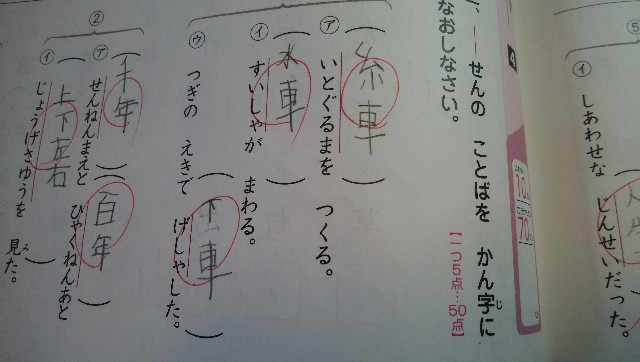 ⑤
イ しあわせな じんせいだった。
4
一、――せんの ことばを かん字に
なおしなさい。
じ
【一つ5点…50点】
ア 糸車
いとぐるまを つくる。
イ 水車
すいしゃが まわる。
ウ つぎの えきで 下車
げしゃした。
②
ア 千年 百年
せんねんまえと ひゃくねんあと
イ 上下左右
じょうげさゆうを 見た。
み